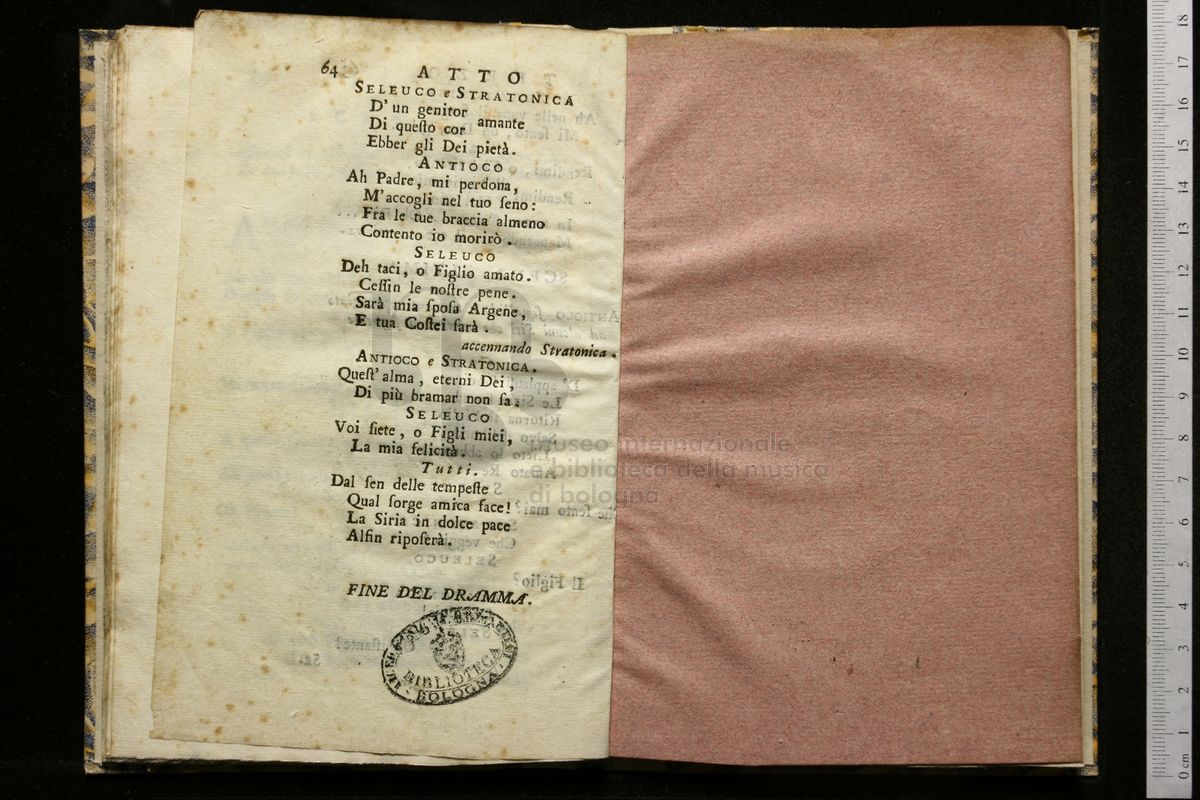 64 ATTO
SELEUCO e STRATONICA
D'un genitor amante
Di queſto cor
Ebber gli Dei pietà.
ANTIOCO
Ah Padre, mi perdona,
M'accogli nel tuo ſeno:
Fra le tue braccia almeno
Contento io morirò.
SELEUCO
Deh taci, o Figlio amato.
Ceſſin le noſtre pene.
Sarà mia ſpoſa Argene,
E tua Coſtei ſarà.
accennando Stratonica.
ANTIOCO e STRATONICA.
Queſt'alma, eterni Dei,
Di più bramar non ſa.
SELEUCO
Voi ſiete, o Figli miei,
La mia felicità.
Tutti.
Dal ſen delle tempeſte
Qual ſorge amica face!
La Siria in dolce pace
Alfin ripoſerà.
FINE DEL DRAMMA.
BIBLIOTECA
BOLOGNA
museo internazionale
e biblioteca della musica
di bologna
0 cm 1 2 3 4 5 6 7 8 9 10 11 12 13 14 15 16 17 18